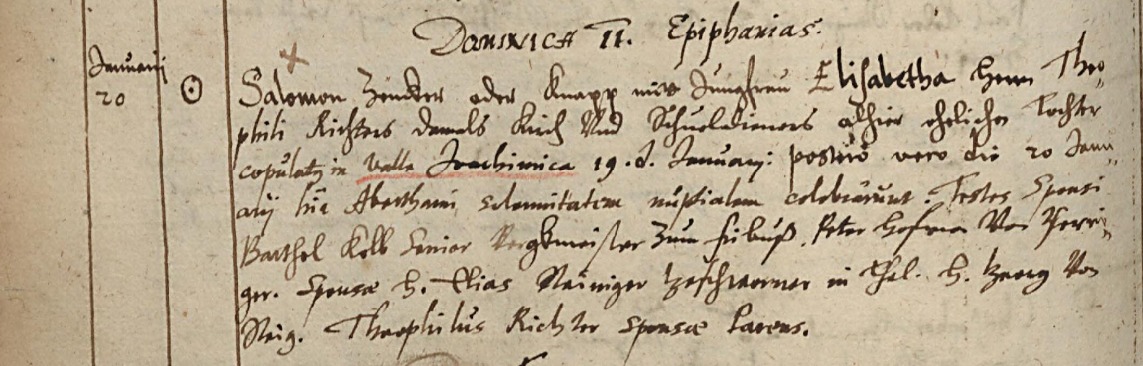 Dominica II. Epiphanias.
Januarij
20
Salomon Zenckter oder Knapp mitt Jungfrau Elisabetha Herrn Theo-
phili Richters damals Kirch Und Schueldieners alhier ehelicher Tochter
copulatg in Valle Joachimica 19. d. Januarij: postero vero die 20 Janu-
arij hic Aberthami solennitatem nuptialem celebrarunt. Testes Sponsi
Barthel Kolb Senior Bergkmeister Zum
Peter Hofman Von
ger. Sponsæ H. Elias Geschworner in Thal. H. Georg Von
Theophilus Richter Sponsæ Parens.